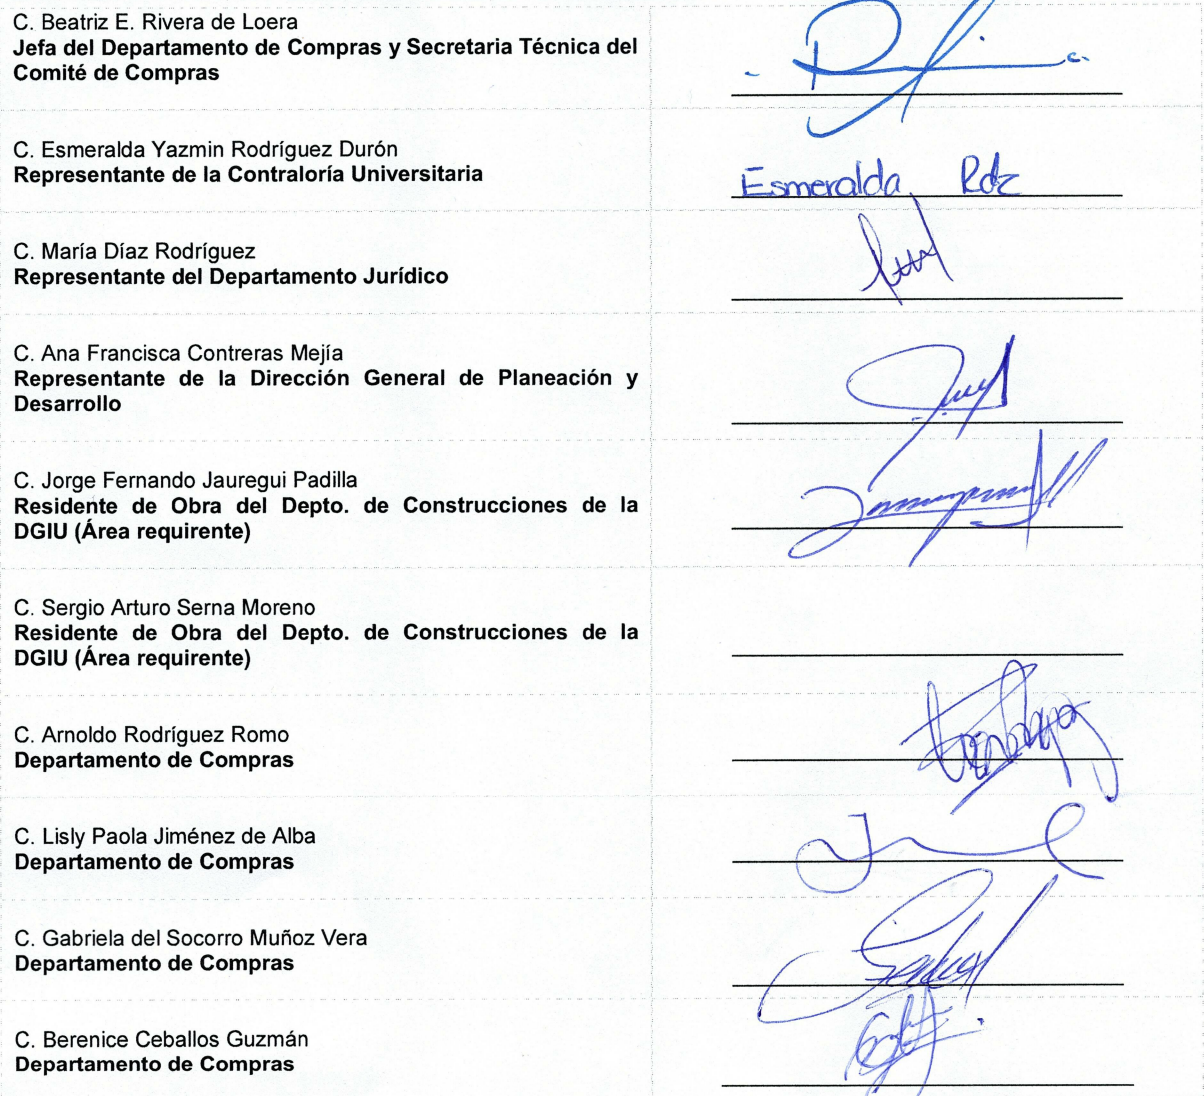 C. Beatriz E. Rivera de Loera
Jefa del Departamento de Compras y Secretaria Técnica del
Comité de Compras
C. Esmeralda Yazmin Rodríguez Durón
Representante de la Contraloría Universitaria
Esmeralda Rdz
C. María Díaz Rodríguez
Representante del Departamento Jurídico
C. Ana Francisca Contreras Mejía
Representante de la Dirección General de Planeación y
Desarrollo
C. Jorge Fernando Jauregui Padilla
Residente de Obra del Depto. de Construcciones de la
DGIU (Área requirente)
C. Sergio Arturo Serna Moreno
Residente de Obra del Depto. de Construcciones de la
DGIU (Área requirente)
C. Arnoldo Rodríguez Romo
Departamento de Compras
C. Lisly Paola Jiménez de Alba
Departamento de Compras
C. Gabriela del Socorro Muñoz Vera
Departamento de Compras
C. Berenice Ceballos Guzmán
Departamento de Compras